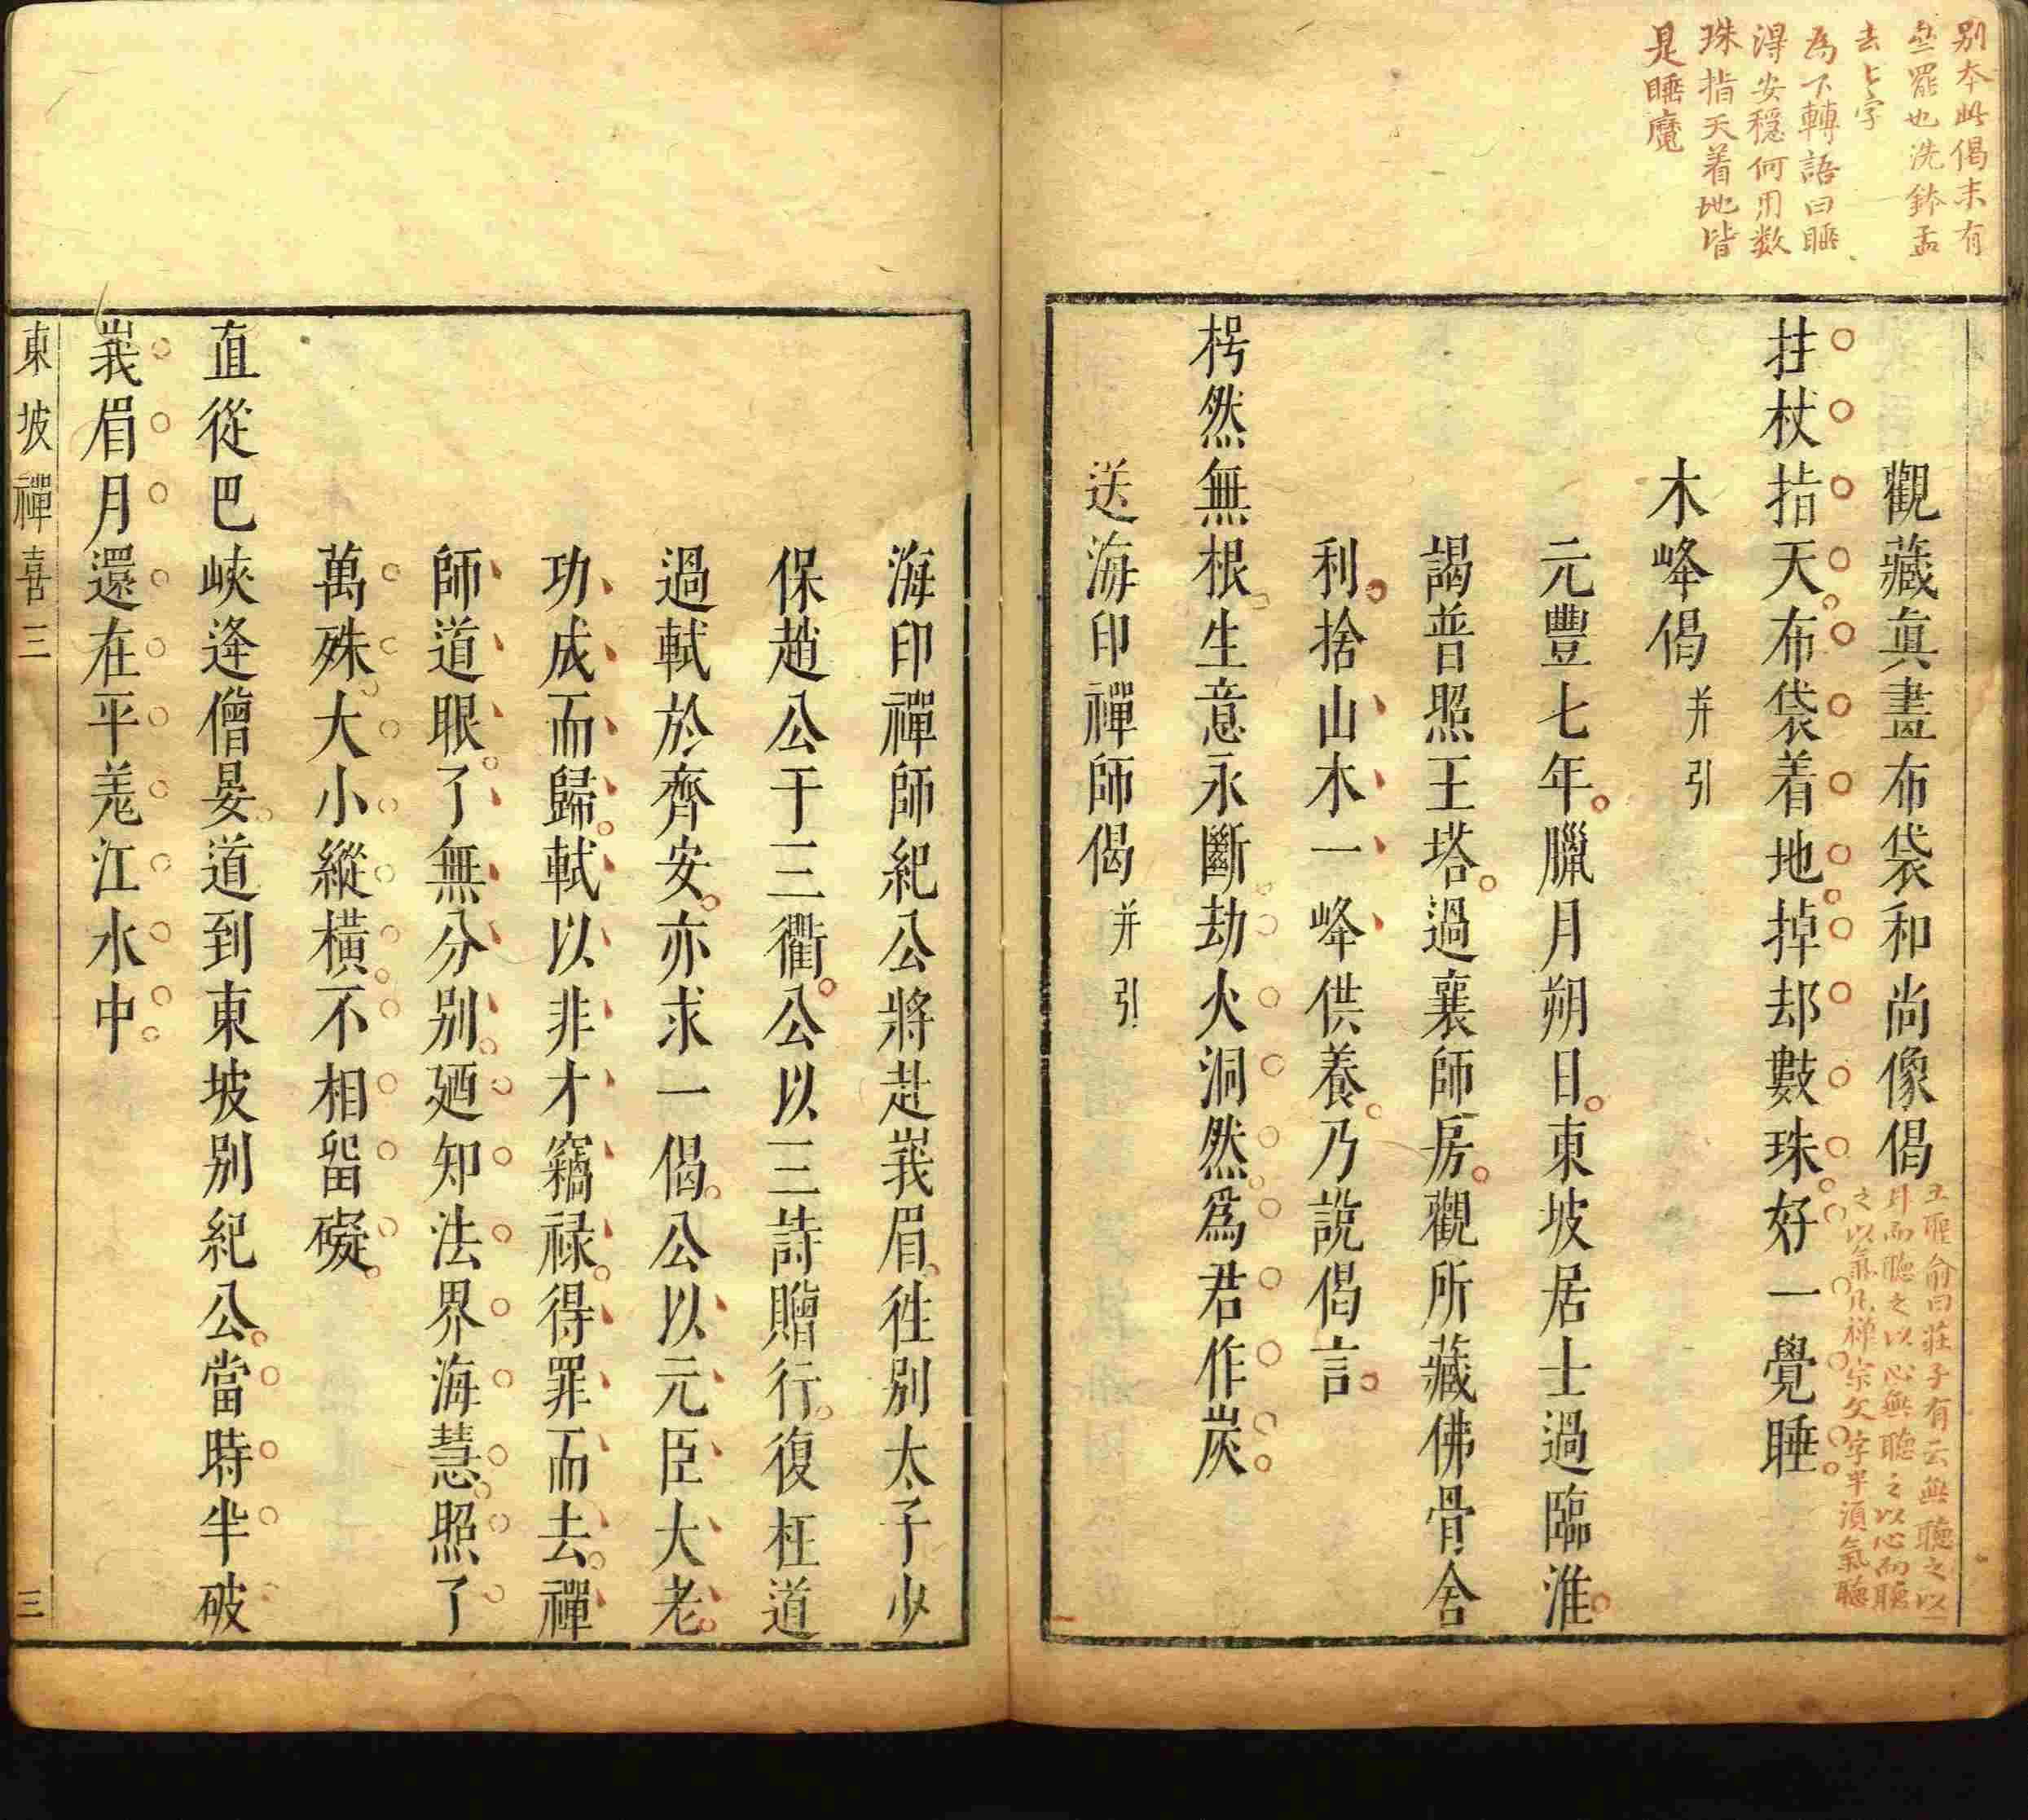 別本此偈末有
無罷也洗鉢盂
去七字
為下轉語曰睡
得安穩何用数
珠指天着地皆
是睡魔
觀藏真畫布袋和尚像偈
王聖俞曰莊子有云無聽之以
耳而聽之以心無聽之以心而聽
之以氣凡禅宗文字半須氣聽
拄杖指天布袋着地掉却數珠好一覺睡
木峰偈并引
元豐七年臘月朔日東坡居士過臨淮
謁普照王塔過襄師房觀所藏佛骨舍
利捨山木一峰供養乃說偈言
枵然無根生意永斷劫火洞然爲君作炭
送海印禪師偈并引
海印禪師紀公將赴峩眉徃別太子少
保趙公于三衢公以三詩贈行復枉道
過軾於齊安亦求一偈公以元臣大老
功成而歸軾以非才竊禄得罪而去禪
師道眼了無分別廼知法界海慧照了
萬殊大小縱橫不相留礙
直從巴峽逢僧晏道到東坡別紀公當時半破
峩眉月還在平羌江水中
東坡禪喜三
三